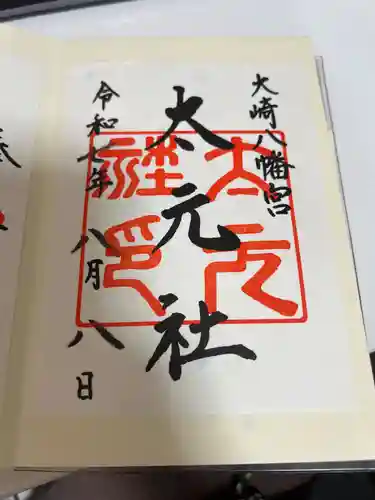 大崎八幡宮
太元社
令和七年 八月 八日
太元社印